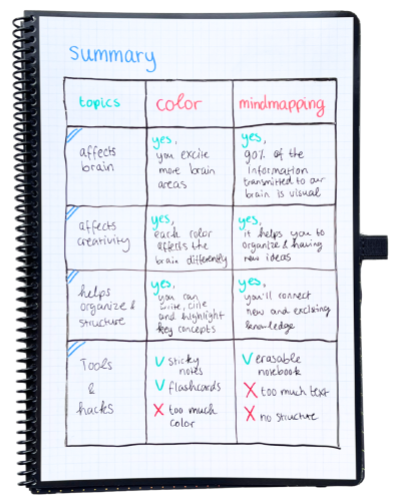 summary
topics
color
mindmapping
affects
brain
yes,
you excite
more brain
areas
yes,
90% of the
information
transmitted to our
brain is visual
affects
creativity
yes,
each color
affects the
brain differently
yes,
it helps you to
organize & having
new ideas
helps
organize &
structure
yes,
you can
write, circle
and highlight
key concepts
yes,
you'll connect
new and existing
knowledge
Tools
&
hacks
✓ sticky
notes
✓ flashcards
X too much
color
✓ erasable
notebook
X too much text
X no structure